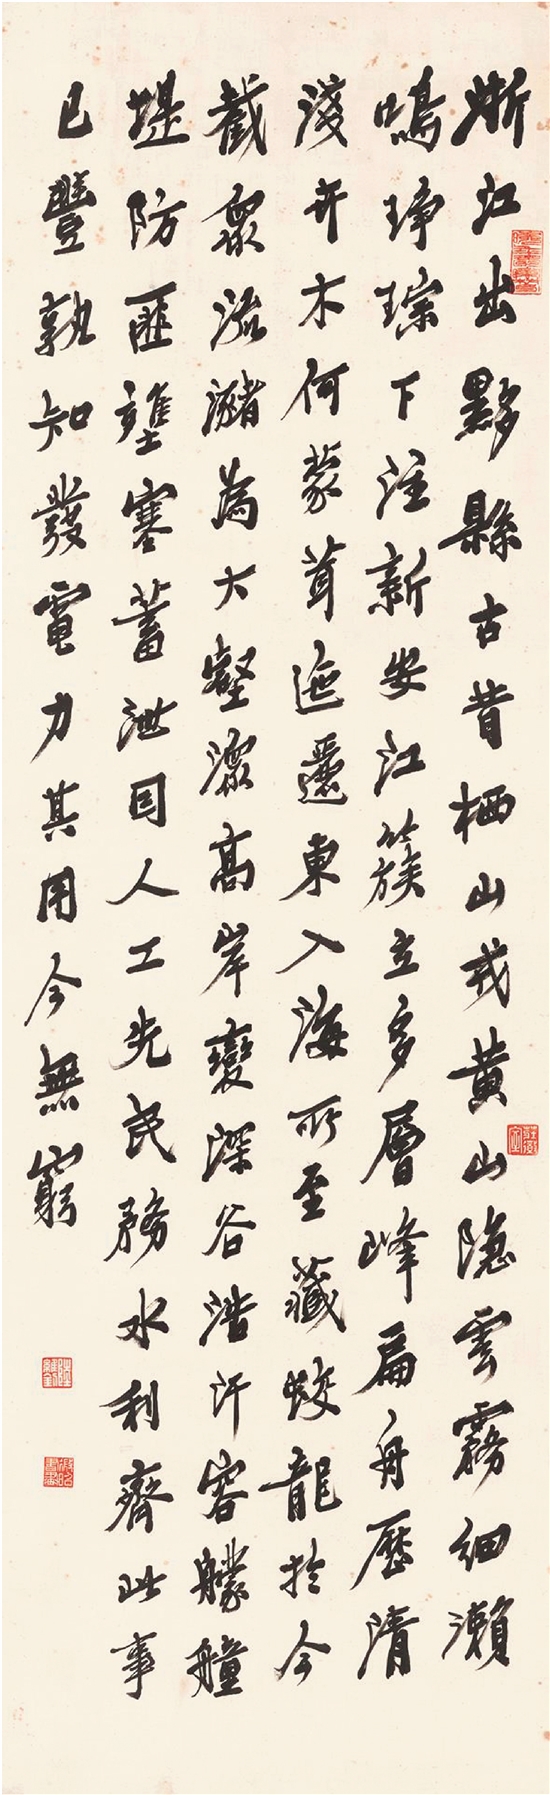 浙江出黟縣古昔栖山戎黄山隐雲霧細瀨
鳴琤琮下注新安江簇立多層峰扁舟歷清
淺卉木何蒙茸迤邐東入海所至藏蛟龍於今
截衆流瀦為大壑潨高岸變深谷浩汗容艨艟
堤防匪壅塞蓄泄因人工先民務水利齊此事
已豐孰知發電力其用今無窮